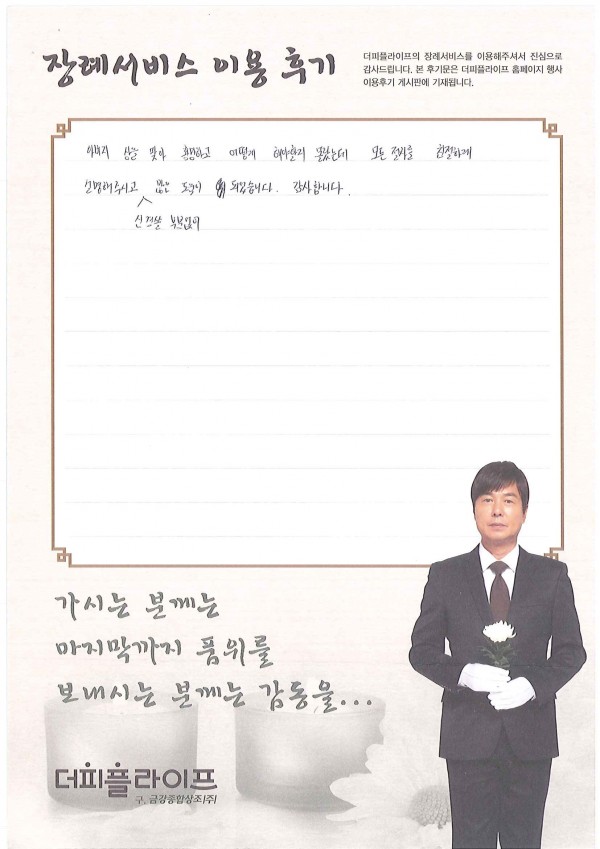 장례서비스 이용 후기
더피플라이프의 장례서비스를 이용해주셔서 진심으로
감사드립니다. 본 후기문은 더피플라이프 홈페이지 행사
이용후기 게시판에 기재됩니다.
아버지 상을 맞아 황망하고 어떻게 해야할지 몰랐는데 모든 절차를 친절하게
설명해주시고 많은 도움이 되었습니다. 감사합니다.
신경쓸 부분없이
가시는 분께는
마지막까지 품위를
보내시는 분께는 감동을...
더피플라이프
구. 금강종합상조(주)